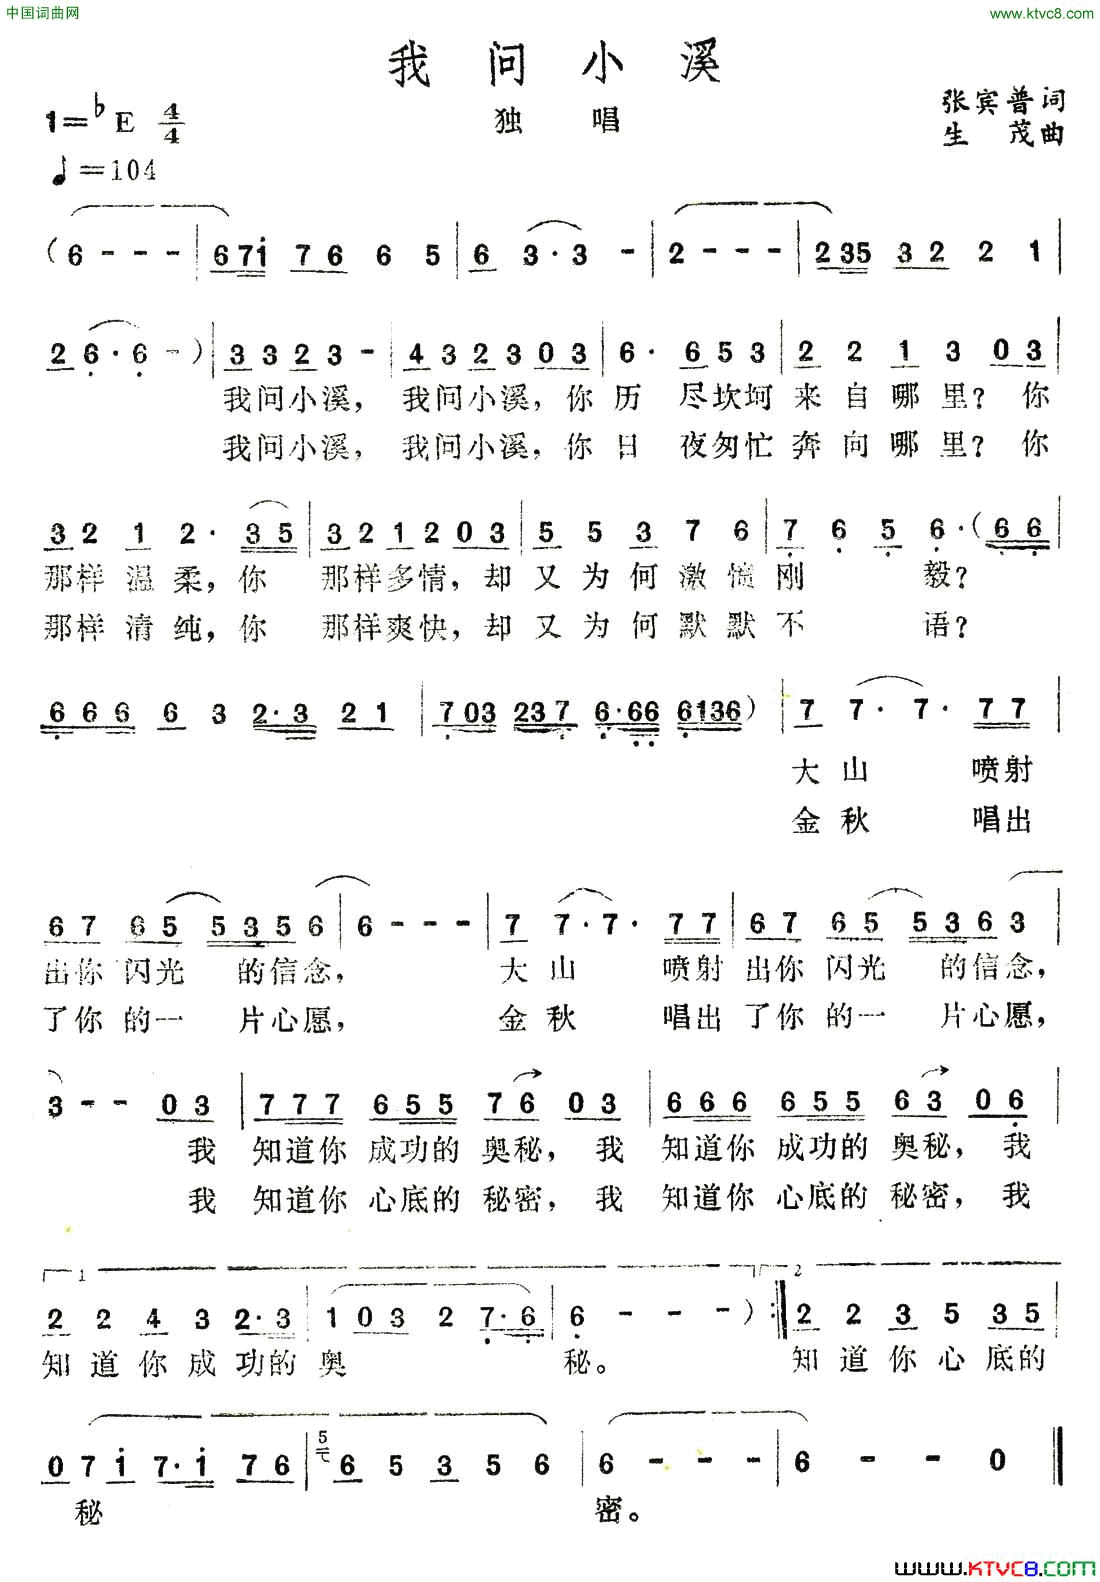 中国词曲网
www.ktvc8.com
我 问 小 溪
1=♭E 4/4
独 唱
张宾普词
生 茂曲
♩=104
(6 - - - | 671 76 6 5 | 6 3·3 - | 2 - - - | 235 32 2 1 |
2 6·6 - ) | 3323 - | 4323 03 | 6· 653 | 2 2 1 3 03 |
我问小溪， 我问小溪，你 历 尽坎坷 来自哪里？你
我问小溪， 我问小溪，你 日 夜匆忙 奔向哪里？你
32 1 2· 35 | 321203 | 5 5 3 7 6 | 7 6 5 6·(66
那样 温柔，你 那样多情，却 又为何激愤刚 毅？
那样 清纯，你 那样爽快，却 又为何默默不 语？
666 6 3 2·3 21 | 703 237 6·66 6136) | 7 7·7· 77 |
大山 喷射
金秋 唱出
67 65 5356 | 6 - - - | 7 7·7· 77 | 67 65 5363 |
出你 闪光 的信念， 大山 喷射 出你 闪光 的信念，
了你 的一 片心愿， 金秋 唱出 了你 的一 片心愿，
3 - - 03 | 777 655 76 03 | 666 655 63 06 |
我 知道你 成功的 奥秘，我 知道你 成功的 奥秘，我
我 知道你 心底的 秘密，我 知道你 心底的 秘密，我
1 2
2 2 4 3 2·3 | 103 2 7·6 | 6 - - - ) :‖ 2 2 3 5 35 |
知道你成功的 奥 秘。 知道你心底的
0 7 1 7·1 76 | 5 6 5 3 5 6 | 6 - - - | 6 - - 0 ‖
秘 密。
www.KTVC8.COM